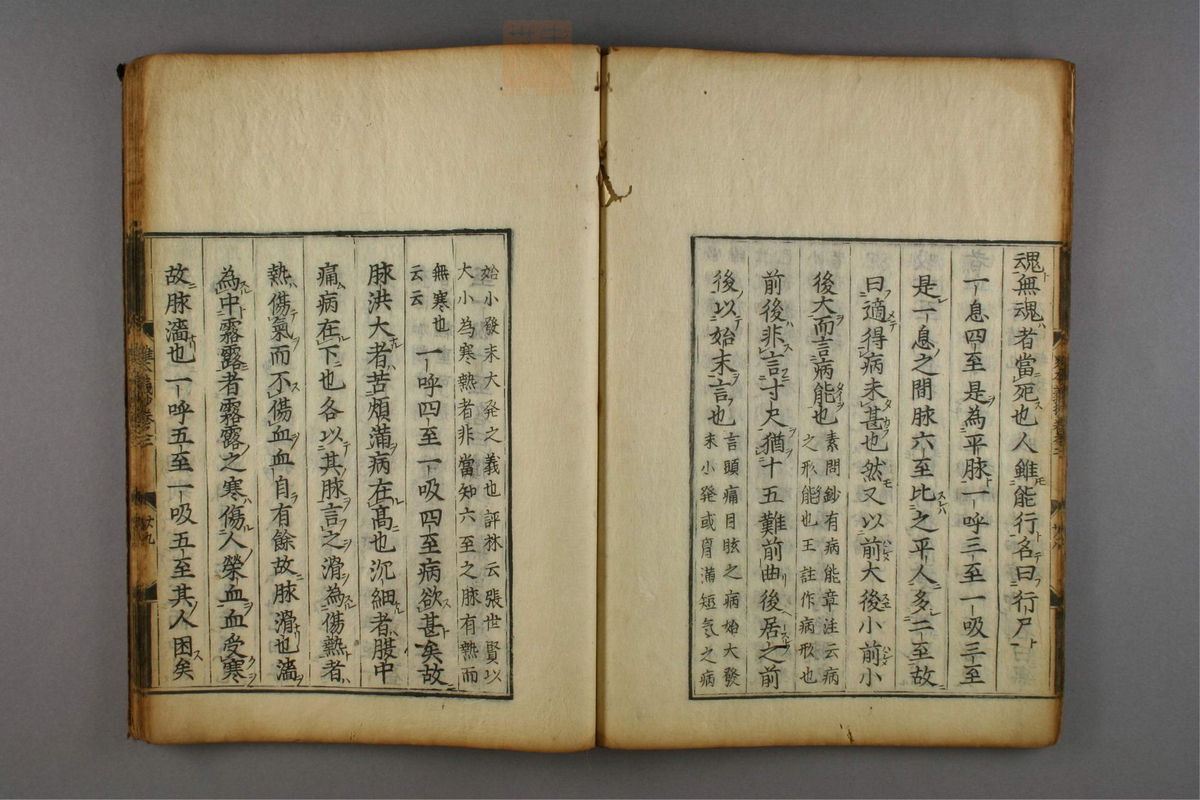 魂無魂者當死也人雖能行名曰行尸
一息四至是為平脉一呼三至一吸三至
是一息之間脉六至比之平人多二至故
曰適得病未甚也然又以前大後小前小
後大而言病能也
素問鈔有病能章注云病
之形能也王註作病形也
前後非言寸尺猶十五難前曲後居之前
後以始末言也
言頭痛目眩之病始大發
末小発或胃滿短気之病
始小發末大発之義也評林云張世賢以
大小為寒熱者非當知六至之脉有熱而
無寒也
云云
一呼四至一吸四至病欲甚矣故
脉洪大者苦煩滿病在髙也沉細者腹中
痛病在下也各以其脉言之滑為傷熱者
熱傷氣而不傷血血自有餘故脉滑也濇
為中霧露者霧露之寒傷人榮血血受寒
故脉濇也一呼五至一吸五至其人困矣